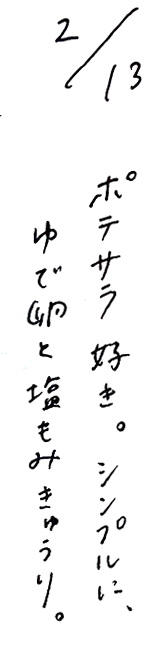 2/13
ポテサラ好き。シンプルに、
ゆで卵と塩もみきゅうり。